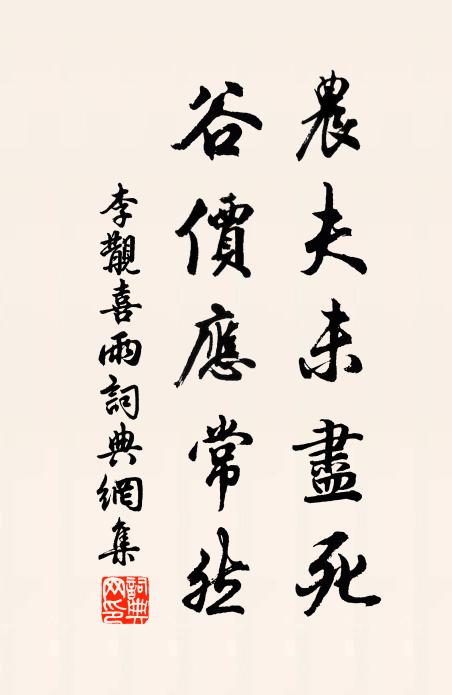 農夫未盡死
谷價應常然
李覯喜雨詞典網集
詞典網印